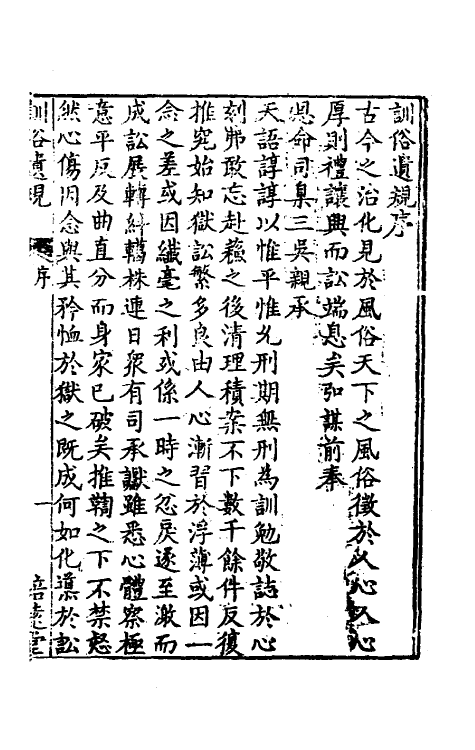 訓俗遺規序
古今之治化見於風俗天下之風俗徵於人心人心
厚則禮讓興而訟端息矣弘謀前奉
恩命司臬三吳親承
天語諄諄以惟平惟允刑期無刑為訓勉敬誌於心
刻弗敢忘赴蘇之後清理積案不下數千餘件反復
推究始知獄訟繁多良由人心漸習於浮薄或因一
念之差或因纖毫之利或係一時之忿戾遂至激而
成訟展轉糾轕株連日衆有司承讞雖悉心體察極
意平反及曲直分而身家已破矣推鞫之下不禁怒
然心傷因念與其矜恤於獄之既成何如化導於訟
訓俗遺規 序 一 培遠堂